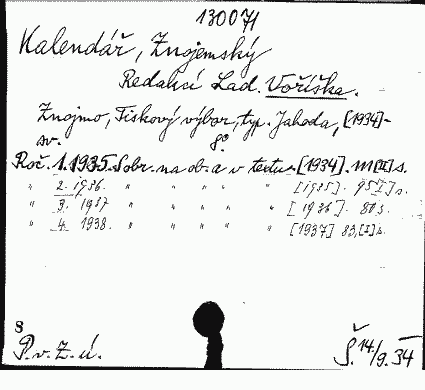 130071
Kalendář, Znojemský
Redakcí Lad. Voříška.
Znojmo, Tiskový výbor, typ. Jahoda, [1934]-
sv. 8°
Roč. 1. 1935. S obr. na ob. a v textu. [1934]. 111 [II] s.
" 2. 1936. " " " " " [1935]. 95 [I] s.
" 3. 1937 " " " " " [1936]. 80 s.
" 4. 1938. " " " " " [1937] 83, [I] s.
8
P. v. Z. ú.
Š. 14/9. 34